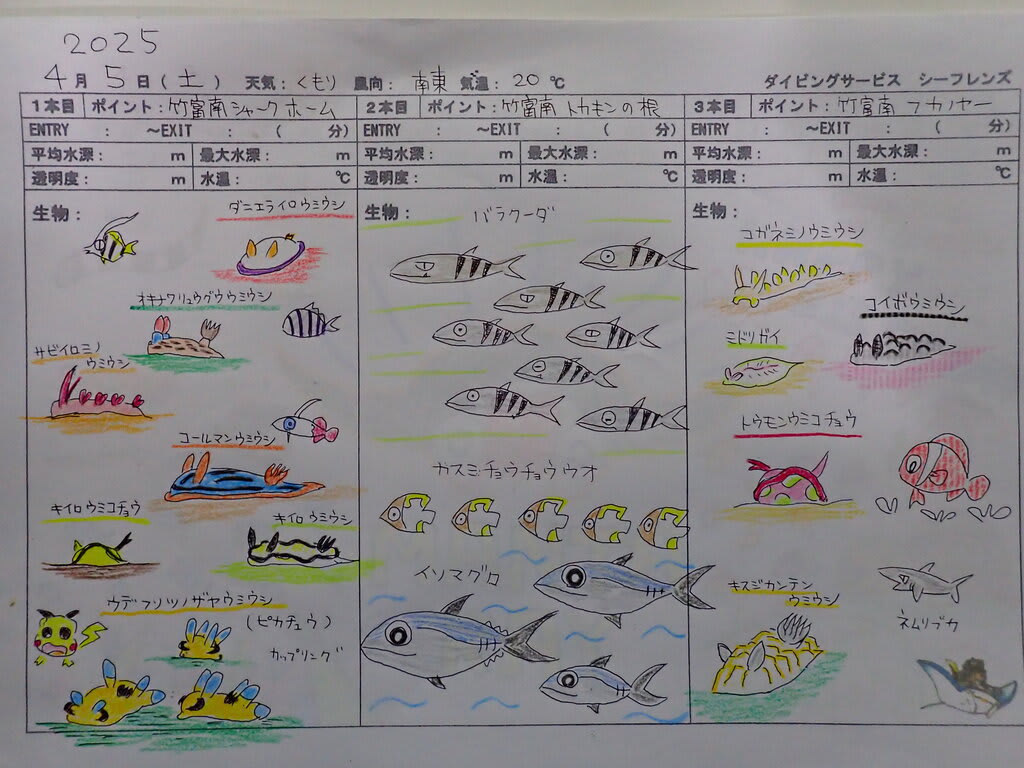 2025
4月 5日(土) 天気:くもり 風向: 南東 気温: 20℃ ダイビングサービス シーフレンズ
1本目 ポイント:竹富南シャークホーム
ENTRY : ~EXIT : ( 分)
平均水深: m 最大水深: m
透明度: m 水温: ℃
生物:
ダニエライロウミウシ
オキナワリュウグウウミウシ
サビイロミノ
ウミウシ
コールマンウミウシ
キイロウミコチョウ
キイロウミウシ
ウデフリツノザヤウミウシ
(ピカチュウ)
カップリング
2本目 ポイント:竹富南トカキンの根
ENTRY : ~EXIT : ( 分)
平均水深: m 最大水深: m
透明度: m 水温: ℃
生物:
バラクーダ
カスミチョウチョウウオ
イソマグロ
3本目 ポイント:竹富南
ENTRY : ~EXIT : ( 分)
平均水深: m 最大水深: m
透明度: m 水温: ℃
生物:
コガネミノウミウシ
コイボウミウシ
ミドリガイ
トウモンウミコチョウ
キスジカンテン
ウミウシ
ネムリブカ